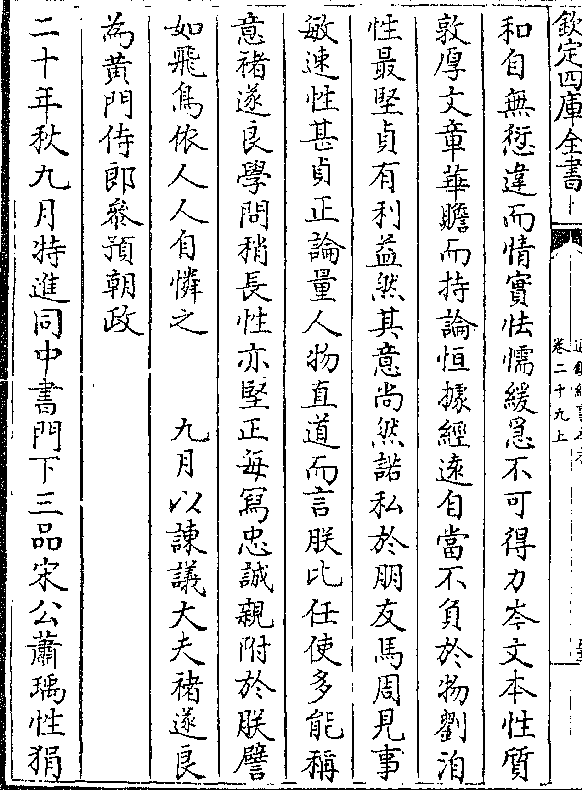 欽定四庫全書
卷二十九上
和自無愆違而情實怯懦緩急不可得力岑文本性質
敦厚文章華贍而持論恒據經逺自當不負於物劉洎
性最堅貞有利益然其意尚然諾私於朋友馬周見事
敏速性甚貞正論量人物直道而言朕比任使多能稱
意褚遂良學問稍長性亦堅正每寫忠誠親附於朕譬
如飛鳥依人人自憐之　　九月以諫議大夫褚遂良
為黃門侍郎叅預朝政
二十年秋九月特進同中書門下三品宋公蕭瑀性狷